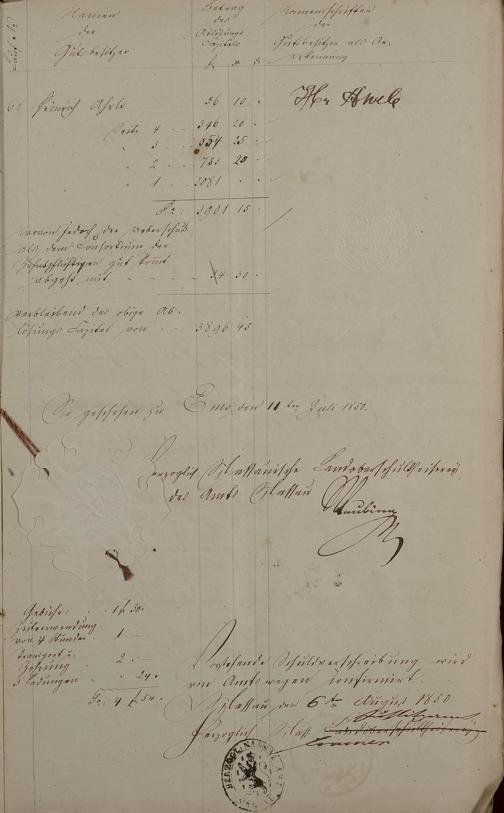 Namen
der
Gutsbesitzer
Betrag
des
Ablösungs
Capitals
Namensschriften
der
Gutsbesitzer als An-
erkennung
62 Heinrich 36 10
Seite 4 346 20
" 3 654 25
" 2 783 20
" 1 2081
3901 15
wovon jedoch der Ueberschuß
als dem Consortium der
Zehntpflichtigen gut kommt
abgeht mit
verbleibend das obige Ab-
lösungs Capital von 3896 45
So geschehen zu Ems den 11ten Juli 1850.
Herzoglich Nassauische Landoberschultheiserei
des Amts Nassau
Gebühr: 1 f. 30.
Zeitverwendung
von 4 Stunden 1
Transport u.
Zehrung 2
3 Ladungen 24
4 f 54
Vorstehende Schuldverschreibung wird
von Amtswegen confirmirt.
Nassau den 6ten August 1850
Herzoglich Nass. Landoberschultheiserei